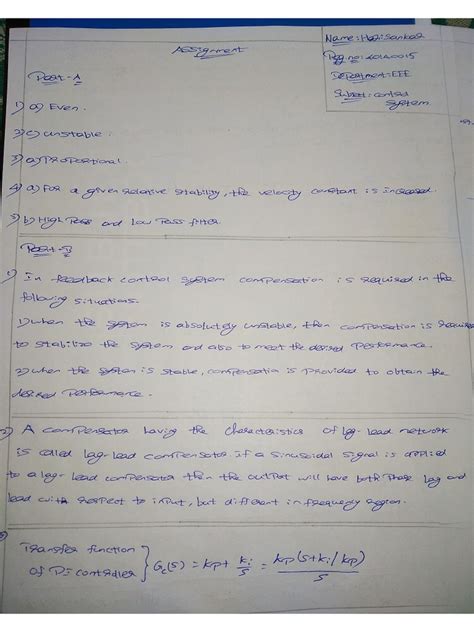 Assignment
Name: Hari Sankar
Reg.no: 20140015
Department: EEE
Subject: control
System
Part-A
1) a) Even.
2) c) unstable.
3) a) proportional.
4) a) For a given relative stability, the velocity constant is increased.
5) b) High Pass and low Pass filter.
Part-B
1) In feedback control system compensation is required in the
following situations.
1) when the system is absolutely unstable, then compensation is required
to stabilize the system and also to meet the desired performance.
2) when the system is stable, compensation is provided to obtain the
desired performance.
2) A compensator having the characteristics of lag-lead network
is called lag-lead compensator. If a sinusoidal signal is applied
to a lag-lead compensator then the output will have both phase lag and
lead with respect to input, but different in frequency region.
Transfer function
of PI controller } Gc(s) = kp + ki/s = kp(s+ki/kp)/s